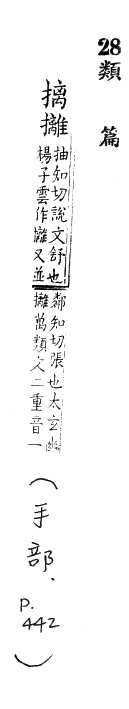 28類篇
摛攡
抽知切說文舒也
楊子雲作攡又並
鄰知切張也太玄幽
攡萬類文二重音一
(手部、
p.
442
)